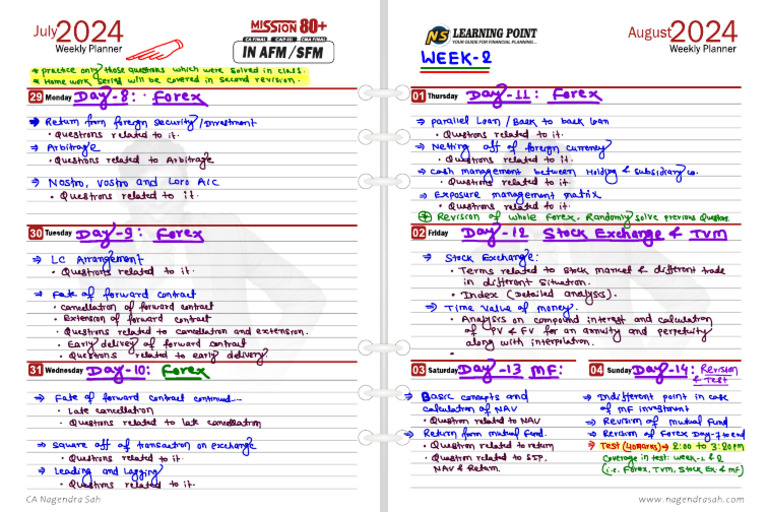 July 2024
Weekly Planner
MISSION 80+
CA FINAL CMA FINAL
IN AFM/SFM
* practice only those questions which were solved in class.
* Home work series will be covered in second revision.
29 Monday Day-8: Forex
→ Return from foreign security/Investment
• Questions related to it.
→ Arbitrage
• Questions related to Arbitrage
→ Nostro, Vostro and Loro A/C
• Questions related to it.
30 Tuesday Day-9: Forex
→ LC Arrangement
• Questions related to it.
→ Fate of forward contract
• cancellation of forward contract
• Extension of forward contract
• Questions related to cancellation and extension.
• Early delivery of forward contract
• Questions related to early delivery.
31 Wednesday Day-10: Forex
→ Fate of forward contract continued
• Late cancellation
• Questions related to late cancellation
→ square off of transaction on exchange
• Questions related to it.
→ Leading and Lagging
• Questions related to it.
CA Nagendra Sah
NS LEARNING POINT
YOUR GUIDE FOR FINANCIAL PLANNING...
WEEK-2
August 2024
Weekly Planner
01 Thursday Day-11: Forex
→ parallel Loan / Back to back loan
• Questions related to it.
→ Netting off of foreign currency
• Questions related to it.
→ cash management between Holding & subsidiary co.
• Questions related to it.
→ Exposure management matrix
• Questions related to it.
⊕ Revision of whole Forex. Randomly solve previous Question.
02 Friday Day-12 Stock Exchange & TVM
→ Stock Exchange:
• Terms related to stock market & different trade
in different situation.
• Index (Detailed analysis).
→ Time value of money.
• Analysis on compound interest and calculation
of PV & FV for an annuity and perpetuity
along with interpolation.
03 Saturday Day-13 MF:
→ Basic concepts and
calculation of NAV
• Question related to NAV
→ Return from mutual Fund.
• Question related to return
• Question related to SIP,
NAV & Return.
04 Sunday Day-14: Revision
& Test
→ Indifferent point in case
of MF investment
→ Revision of mutual Fund
→ Revision of Forex Day-7 to end
→ Test (40marks) → 2:00 to 3:20 pm
Coverage in test: week-1 & 2
(i.e. Forex, TVM, Stock Ex & MF)
www.nagendrasah.com